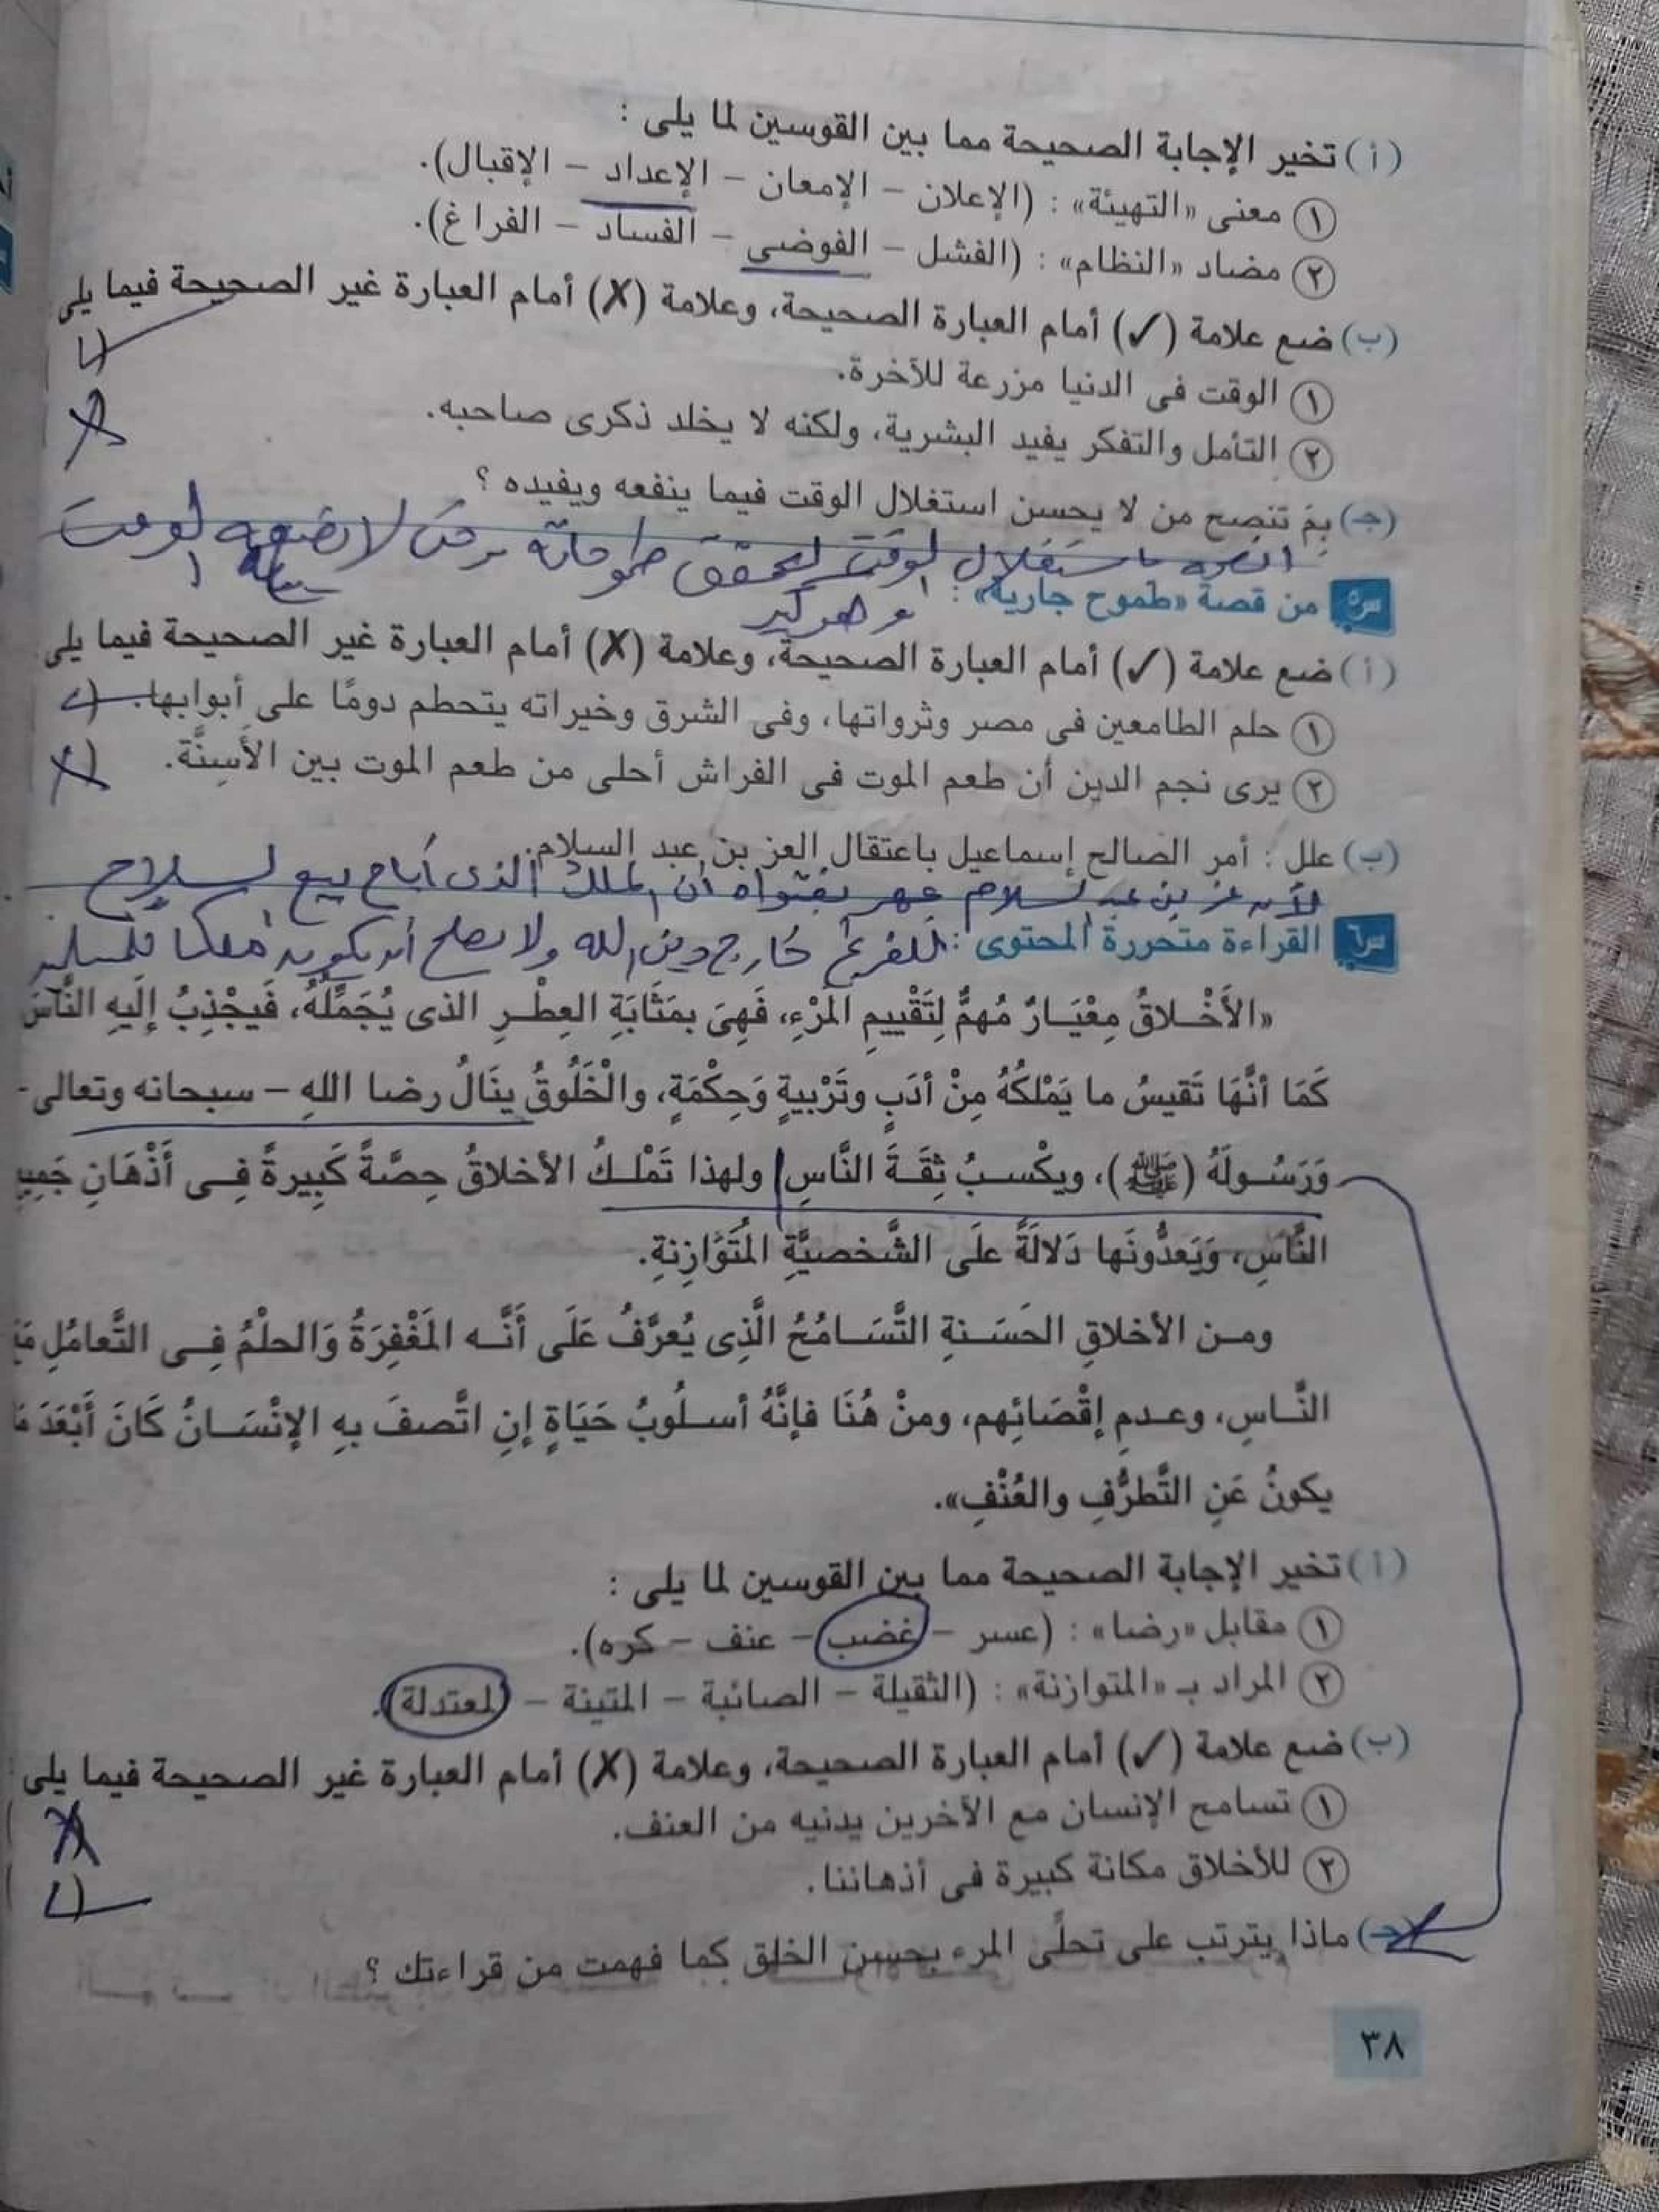 (أ) تخير الإجابة الصحيحة مما بين القوسين لما يلى :
١ معنى «التهيئة» : (الإعلان – الإمعان – الإعداد – الإقبال).
٢ مضاد «النظام» : (الفشل – الفوضى – الفساد – الفراغ).
(ب) ضع علامة (✓) أمام العبارة الصحيحة، وعلامة (✗) أمام العبارة غير الصحيحة فيما يلى
١ الوقت فى الدنيا مزرعة للآخرة.
٢ التأمل والتفكر يفيد البشرية، ولكنه لا يخلد ذكرى صاحبه.
(جـ) بِمَ تنصح من لا يحسن استغلال الوقت فيما ينفعه ويفيده ؟
باستغلال الوقت طموحاته لا
س٥ من قصة «طموح جارية» :
(أ) ضع علامة (✓) أمام العبارة الصحيحة، وعلامة (✗) أمام العبارة غير الصحيحة فيما يلى
١ حلم الطامعين فى مصر وثرواتها، وفى الشرق وخيراته يتحطم دومًا على أبوابها.
٢ يرى نجم الدين أن طعم الموت فى الفراش أحلى من طعم الموت بين الأَسِنَّة.
(ب) علل : أمر الصالح إسماعيل باعتقال العز بن عبد السلام.
بن عبد السلام جهر بفتواه أن الملك الذى أباح بيع السلاح
س٦ القراءة متحررة المحتوى :
للفرنج خارج دين الله ولا يصلح أن يكون ملكا للمسلمين
«الأَخْلاقُ مِعْيَارٌ مُهِمٌّ لِتَقْييمِ المَرْءِ، فَهِىَ بِمَثَابَةِ العِطْرِ الذى يُجَمِّلُهُ، فَيَجْذِبُ إِلَيهِ النَّاسَ
كَمَا أَنَّهَا تَقيسُ ما يَمْلكُهُ مِنْ أدَبٍ وتَرْبيةٍ وَحِكْمَةٍ، والْخَلُوقُ يَنَالُ رضا اللهِ – سبحانه وتعالى -
وَرَسُولَهُ (ﷺ)، ويكْسبُ ثِقَةَ النَّاسِ ولهذا تَمْلكُ الأخلاقُ حِصَّةً كَبِيرةً فِى أَذْهَانِ جَمِيعِ
النَّاسِ، وَيَعدُّونَها دَلالَةً علَى الشَّخصيَّةِ المُتَوَازِنةِ.
ومن الأخلاقِ الحَسَنةِ التَّسَامُحُ الَّذِى يُعرَّفُ عَلَى أَنَّه المَغْفِرَةُ وَالحلْمُ فِى التَّعامُلِ مَعَ
النَّاسِ، وعدمِ إقْصَائِهم، ومنْ هُنَا فإنَّهُ أسلُوبُ حَيَاةٍ إنِ اتَّصفَ بهِ الإنْسَانُ كَانَ أَبْعَدَ مَا
يكونُ عَنِ التَّطرُّفِ والعُنْفِ».
(أ) تخير الإجابة الصحيحة مما بين القوسين لما يلى :
١ مقابل «رضا» : (عسر – غضب – عنف – كره).
٢ المراد بـ «المتوازنة» : (الثقيلة – الصائبة – المتينة – المعتدلة).
(ب) ضع علامة (✓) أمام العبارة الصحيحة، وعلامة (✗) أمام العبارة غير الصحيحة فيما يلى
١ تسامح الإنسان مع الآخرين يدنيه من العنف.
٢ للأخلاق مكانة كبيرة فى أذهاننا.
(جـ) ماذا يترتب على تحلِّى المرء بحسن الخلق كما فهمت من قراءتك ؟
٣٨